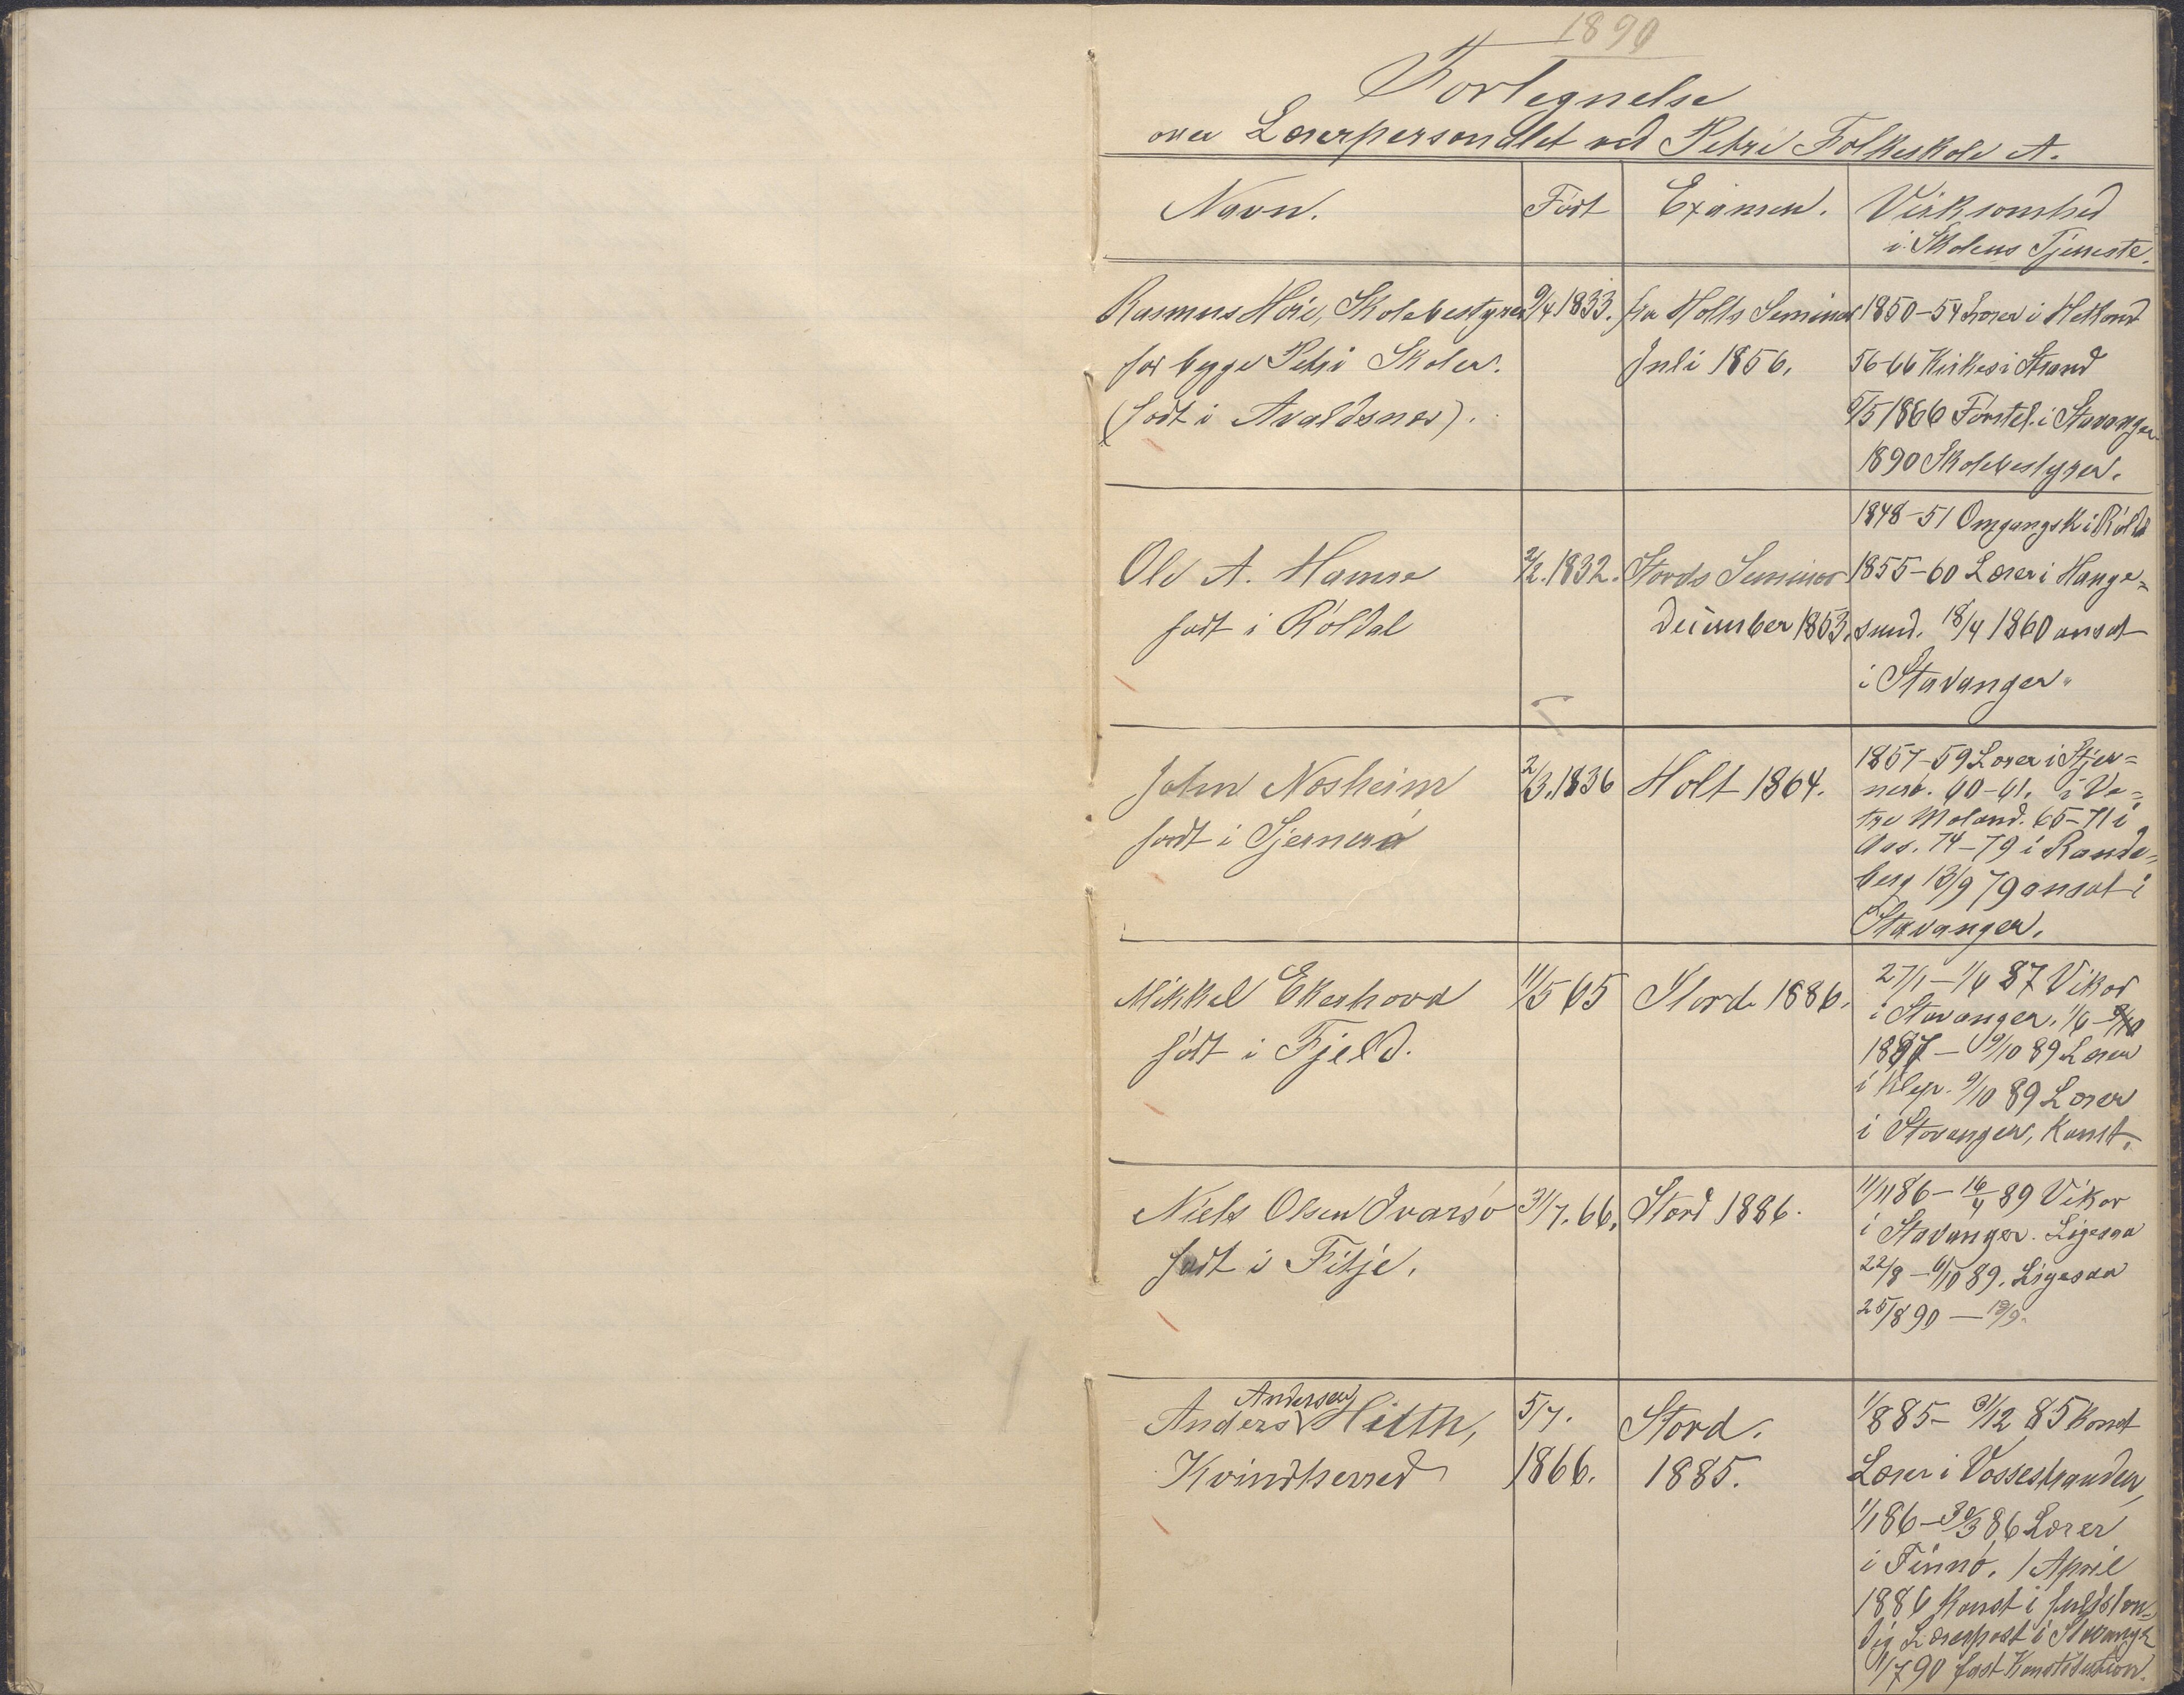 1890
Fortegnelse
over Lærerpersonalet ved Petri Folkeskole A.
Navn. Født Examen. Virksomhed
i Skolens Tjeneste.
Rasmus Høie, Skolebestyrer 9/4 1833. fra Holts Seminar 1850-54 Lærer i Hetland
for begge Petri Skoler. Juli 1856. 56-66 Kirkes i Strand
(født i Avaldsnes). /5 1866 Førstel. i Stavanger
1890 Skolebestyrer.
1848-51 Omgangsk i Røldal
Ole A. Hamre 2/2. 1832. Stords Seminar 1855-60 Lærer i Hauge=
født i Røldal December 1853. sund. 18/4 1860 ansat
i Stavanger.
John Nosheim 2/3. 1836 Holt 1864. 1857-59 Lærer i Stjer=
født i Sjernerø nerø. 60-61. i Ve=
tre Moland. 65-71 i
Aas. 74-79 i Rande=
berg 13/9 79 ansat i
Stavanger.
Mikkel Ekerhovd 11/5 65 Stord 1886. 27/1-1/4 87 Vikar
født i Fjeld. i Stavanger. 1/6 -
1887 - 9/10 89 Lærer
i Klep. 9/10 89 Lærer
i Stavanger, Konst.
Niels Olsen Ivarsø 31/7. 66. Stord 1886. 11/11 86 - 16/4 89 Vikar
født i Fitje. i Stavanger. Ligesaa
22/8 - 6/10 89. Ligesaa
25/8 90 - 18/9.
Andersen
Anders Hitth, 5/7. Stord. 1/8 85 - 31/12 85 Konst
Kvindherred 1866. 1885. Lærer i Vossestranden,
1/1 86 - 30/3 86 Lærer
i Finnø. 1 April
1886 Konst i fuldstæn=
dig Lærerpost i Stavanger
1/7 90 fast Konstitution.